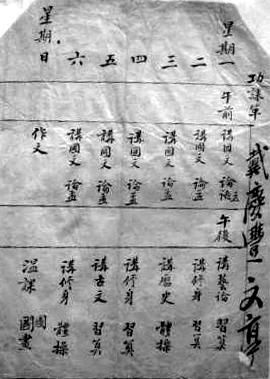 功課單
戴慶豐 文亭
星期一 午前 講国文 論孟 午後 講藝論 習算
二 講國文 論孟 講修身 習算
三 講國文 論孟 講歷史 體操
四 講國文 論孟 講修身 習算
五 講國文 論孟 講古文 習算
六 講國文 論孟 講修身 體操
星期日 作文 溫課 圖畫